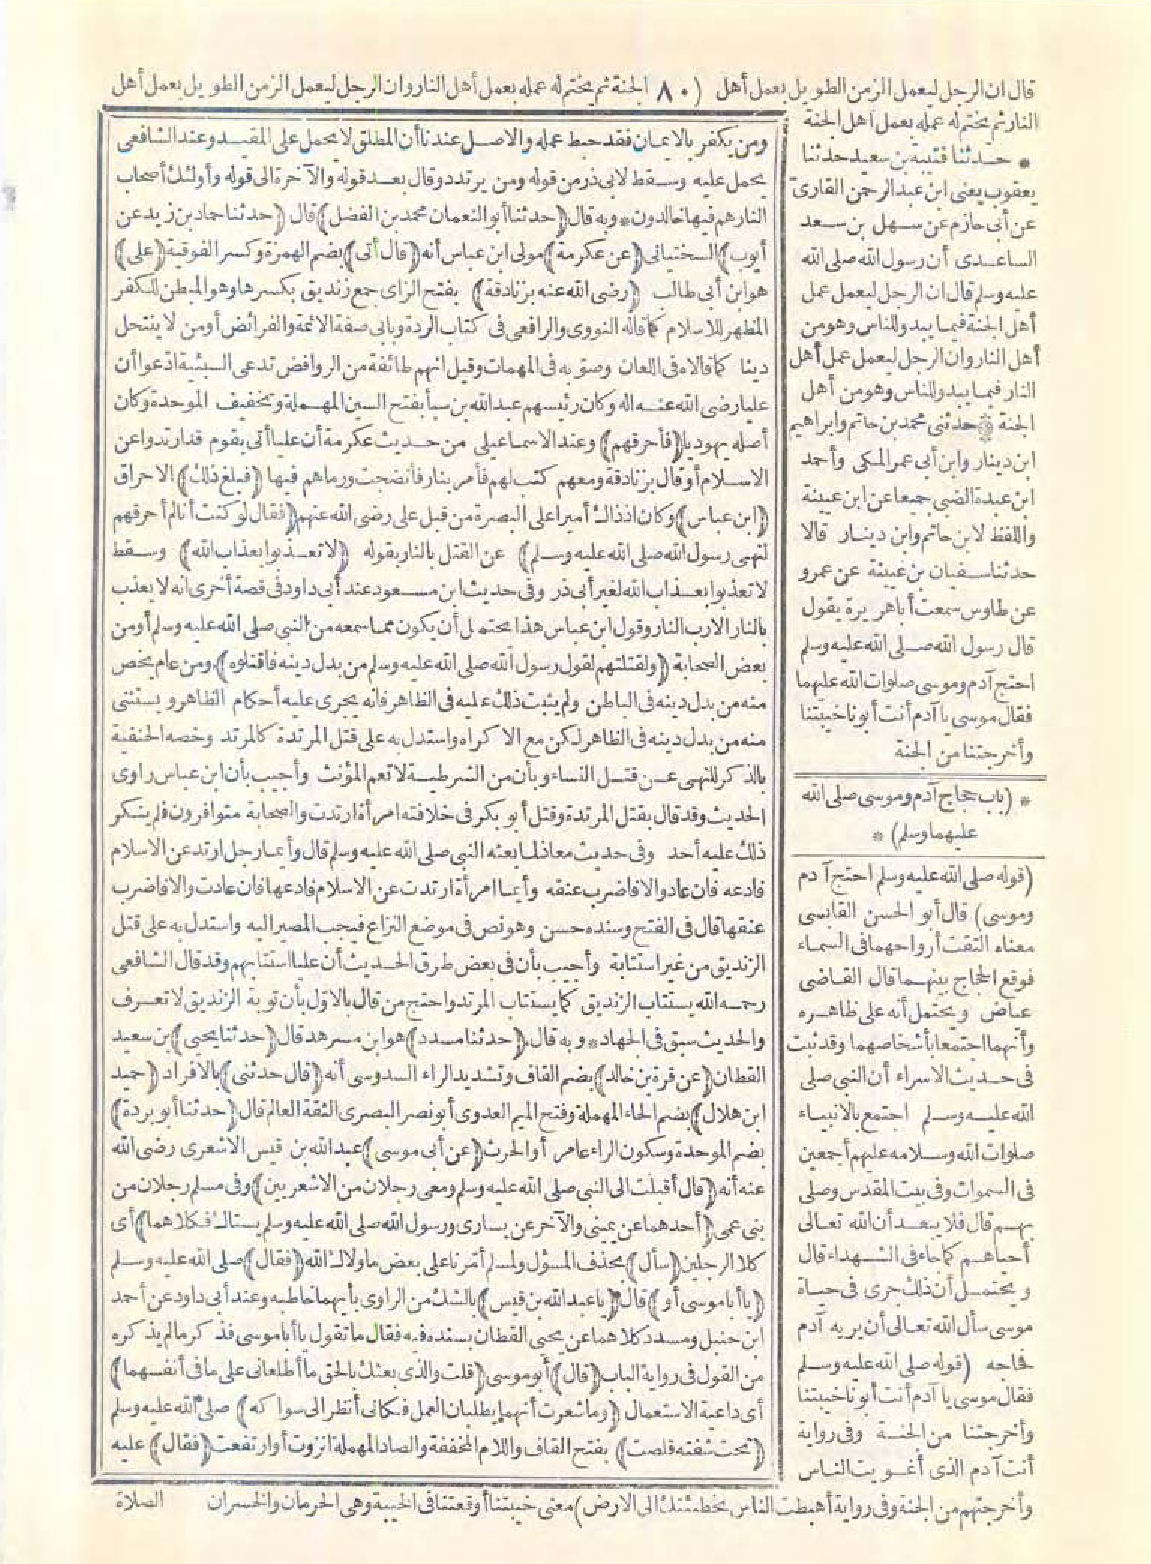 قال ان الرجل ليعمل الزمن الطويل بعمل أهل (٨٠) الجنة ثم يختم له عمله بعمل أهل النار وان الرجل ليعمل الزمن الطويل بعمل أهل
النار ثم يختم له عمله بعمل أهل الجنة
* حدثنا قتيبة بن سعيد حدثنا
يعقوب يعنى ابن عبد الرحمن القارىّ
عن أبى حازم عن سهل بن سعد
الساعدى أن رسول الله صلى الله
عليه وسلم قال ان الرجل ليعمل عمل
أهل الجنة فيما يبدو للناس وهو من
أهل النار وان الرجل ليعمل عمل أهل
النار فيما يبدو للناس وهو من أهل
الجنة * حدثنى محمد بن حاتم وابراهيم
ابن دينار وابن أبى عمر المكى وأحمد
ابن عبدة الضبى جميعا عن ابن عيينة
واللفظ لابن حاتم وابن دينار قالا
حدثنا سفيان بن عيينة عن عمرو
عن طاوس سمعت أبا هريرة يقول
قال رسول الله صلى الله عليه وسلم
احتج آدم وموسى صلوات الله عليهما
فقال موسى يا آدم أنت أبونا خيبتنا
وأخرجتنا من الجنة
* (باب حجاج آدم وموسى صلى الله
عليهما وسلم) *
(قوله صلى الله عليه وسلم احتج آدم
وموسى) قال أبو الحسن القابسى
معناه التقت أرواحهما فى السماء
فوقع الحجاج بينهما قال القاضى
عياض ويحتمل أنه على ظاهره
وأنهما اجتمعا بأشخاصهما وقد ثبت
فى حديث الاسراء أن النبى صلى
الله عليه وسلم اجتمع بالانبياء
صلوات الله وسلامه عليهم أجمعين
فى السموات وفى بيت المقدس وصلى
بهم قال فلا يبعد أن الله تعالى
أحياهم كما جاء فى الشهداء قال
ويحتمل أن ذلك جرى فى حياة
موسى سأل الله تعالى أن يريه آدم
فحاجه (قوله صلى الله عليه وسلم
فقال موسى يا آدم أنت أبونا خيبتنا
وأخرجتنا من الجنة وفى رواية
أنت آدم الذى أغويت الناس
ومن يكفر بالايمان فقد حبط عمله والاصل عندنا أن المطلق لا يحمل على المقيد وعند الشافعى
يحمل عليه وسقط لابى ذر من قوله ومن يرتدد وقال بعد قوله والآخرة الى قوله وأولئك أصحاب
النار هم فيها خالدون * وبه قال (حدثنا أبو النعمان محمد بن الفضل) قال (حدثنا حماد بن زيد عن
أيوب) السختيانى (عن عكرمة) مولى ابن عباس أنه (قال أتى) بضم الهمزة وكسر الفوقية (على)
هو ابن أبى طالب (رضى الله عنه بزنادقة) بفتح الزاى جمع زنديق بكسرها وهو المبطن للكفر
المظهر للاسلام كما قاله النووى والرافعى فى كتاب الردة وبابى صفة الائمة والفرائض أو من لا ينتحل
دينا كما قالاه فى اللعان وصوّبه فى المهمات وقيل انهم طائفة من الروافض تدعى السبئية ادّعوا أن
عليا رضى الله عنه اله وكان رئيسهم عبد الله بن سبأ بفتح السين المهملة وتخفيف الموحدة وكان
أصله يهوديا (فأحرقهم) وعند الاسماعيلى من حديث عكرمة أن عليا أتى بقوم قد ارتدوا عن
الاسلام أو قال بزنادقة ومعهم كتب لهم فأمر بنار فأنضجت ورماهم فيها (فبلغ ذلك) الاحراق
(ابن عباس) وكان اذ ذاك أميرا على البصرة من قبل على رضى الله عنهم (فقال لو كنت أنا لم أحرقهم
لنهى رسول الله صلى الله عليه وسلم) عن القتل بالنار بقوله (لا تعذبوا بعذاب الله) وسقط
لا تعذبوا بعذاب الله لغير أبى ذر وفى حديث ابن مسعود عند أبى داود فى قصة أخرى انه لا يعذب
بالنار الا رب النار وقول ابن عباس هذا يحتمل أن يكون مما سمعه من النبى صلى الله عليه وسلم أو من
بعض الصحابة (ولقتلتهم لقول رسول الله صلى الله عليه وسلم من بدل دينه فاقتلوه) ومن عام يخص
منه من بدل دينه فى الباطن ولم يثبت ذلك عليه فى الظاهر فانه يجرى عليه أحكام الظاهر ويستثنى
منه من بدل دينه فى الظاهر لكن مع الاكراه واستدل به على قتل المرتدة كالمرتد وخصه الحنفية
بالذكر للنهى عن قتل النساء وبأن من الشرطية لا تعم المؤنث وأجيب بأن ابن عباس راوى
الحديث وقد قال بقتل المرتدة وقتل أبو بكر فى خلافته امرأة ارتدت والصحابة متوافرون فلم ينكر
ذلك عليه أحد وفى حديث معاذ لما بعثه النبى صلى الله عليه وسلم قال وأيما رجل ارتد عن الاسلام
فادعه فان عاد والا فاضرب عنقه وأيما امرأة ارتدت عن الاسلام فادعها فان عادت والا فاضرب
عنقها قال فى الفتح وسنده حسن وهو نص فى موضع النزاع فيجب المصير اليه واستدل به على قتل
الزنديق من غير استتابة وأجيب بأن فى بعض طرق الحديث أن عليا استتابهم وقد قال الشافعى
رحمه الله يستتاب الزنديق كما يستتاب المرتد واحتج من قال بالاوّل بأن توبة الزنديق لا تعرف
والحديث سبق فى الجهاد * وبه قال (حدثنا مسدد) هو ابن مسرهد قال (حدثنا يحيى) بن سعيد
القطان (عن قرة بن خالد) بضم القاف وتشديد الراء السدوسى أنه (قال حدثنى) بالافراد (حميد
ابن هلال) بضم الحاء المهملة وفتح الميم العدوى أبو نصر البصرى الثقة العالم قال (حدثنا أبو بردة)
بضم الموحدة وسكون الراء عامر أو الحرث (عن أبى موسى) عبد الله بن قيس الاشعرى رضى الله
عنه أنه (قال أقبلت الى النبى صلى الله عليه وسلم ومعى رجلان من الاشعريين) وفى مسلم رجلان من
بنى عمى (أحدهما عن يمينى والآخر عن يسارى ورسول الله صلى الله عليه وسلم يستاك فكلاهما) أى
كلا الرجلين (سأل) بحذف المسؤل ولمسلم أمّرنا على بعض ما ولاك الله (فقال) صلى الله عليه وسلم
(يا أبا موسى أو) قال (يا عبد الله بن قيس) بالشك من الراوى بأيهما خاطبه وعند أبى داود عن أحمد
ابن حنبل ومسدد كلاهما عن يحيى القطان بسنده فيه فقال ما تقول يا أبا موسى فذكر ما لم يذكره
من القول فى رواية الباب (قال) أبو موسى (قلت والذى بعثك بالحق ما أطلعانى على ما فى أنفسهما)
أى داعية الاستعمال (وما شعرت أنهما يطلبان العمل فكأنى أنظر الى سواكه) صلى الله عليه وسلم
(تحت شفته قلصت) بفتح القاف واللام المخففة والصاد المهملة انزوت أو ارتفعت (فقال) عليه
وأخرجتهم من الجنة وفى رواية أهبطت الناس بخطيئتك الى الارض) معنى خيبتنا أوقعتنا فى الخيبة وهى الحرمان والخسران الصلاة